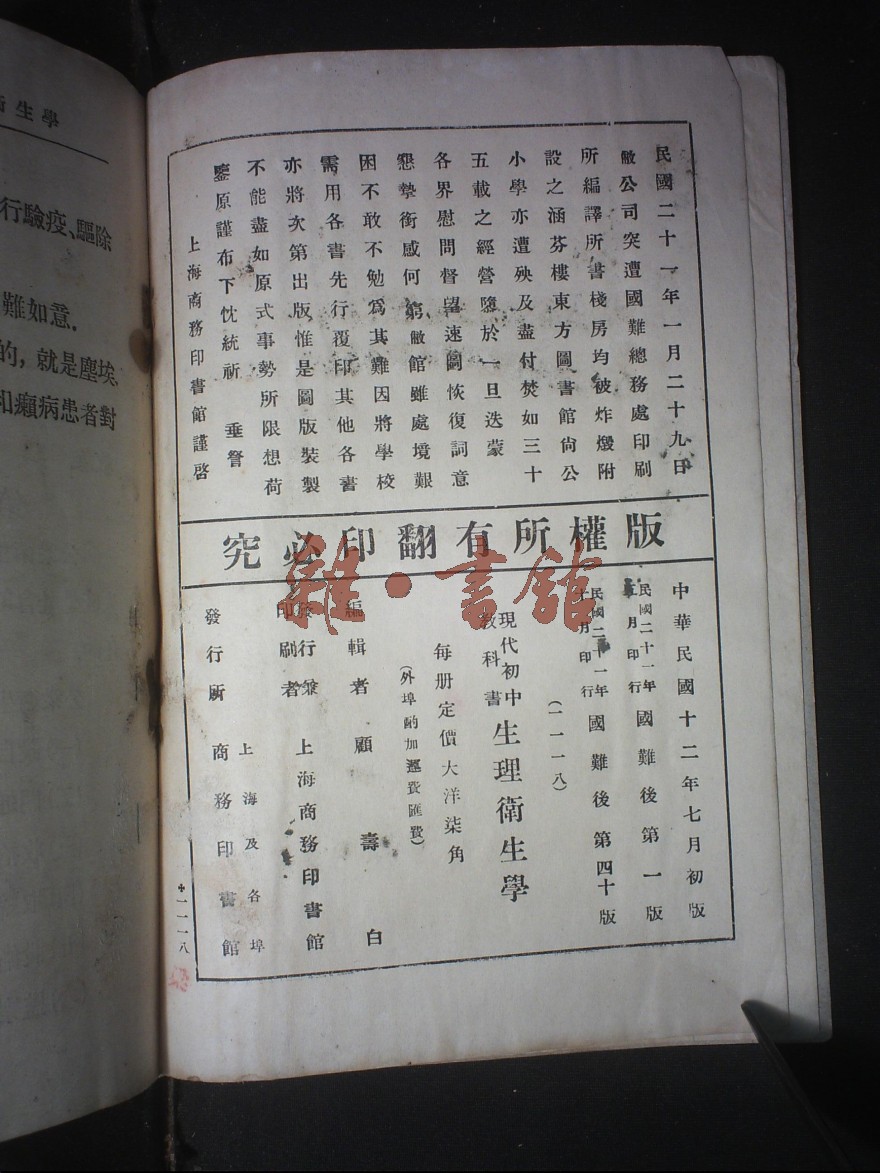 民國二十一年一月二十九日
敝公司突遭國難總務處印刷
所編譯所書棧房均被炸燬附
設之涵芬樓東方圖書館尙公
小學亦遭殃及盡付焚如三十
五載之經營隳於一旦迭蒙
各界慰問督望速圖恢復詞意
懇摯銜感何窮敝館雖處境艱
困不敢不勉爲其難因將學校
需用各書先行覆印其他各書
亦將次第出版惟是圖版裝製
不能盡如原式事勢所限想荷
鑒原謹布下忱統祈 垂詧
上海商務印書館謹啓
版權所有翻印必究
中華民國十二年七月初版
民國二十一年
月印行
國難後第一版
民國二十一年
十月印行
國難後第四十版
(一一一八)
現代初中
教科書
生理衛生學
每册定價大洋柒角
(外埠酌加運費匯費)
編輯者 顧壽白
發行兼
印刷者
上海商務印書館
發行所
上海及各埠
商務印書館
一一一八
雜·書館
衛生學
行驗疫、驅除
難如意.
的,就是塵埃,
和癩病患者對